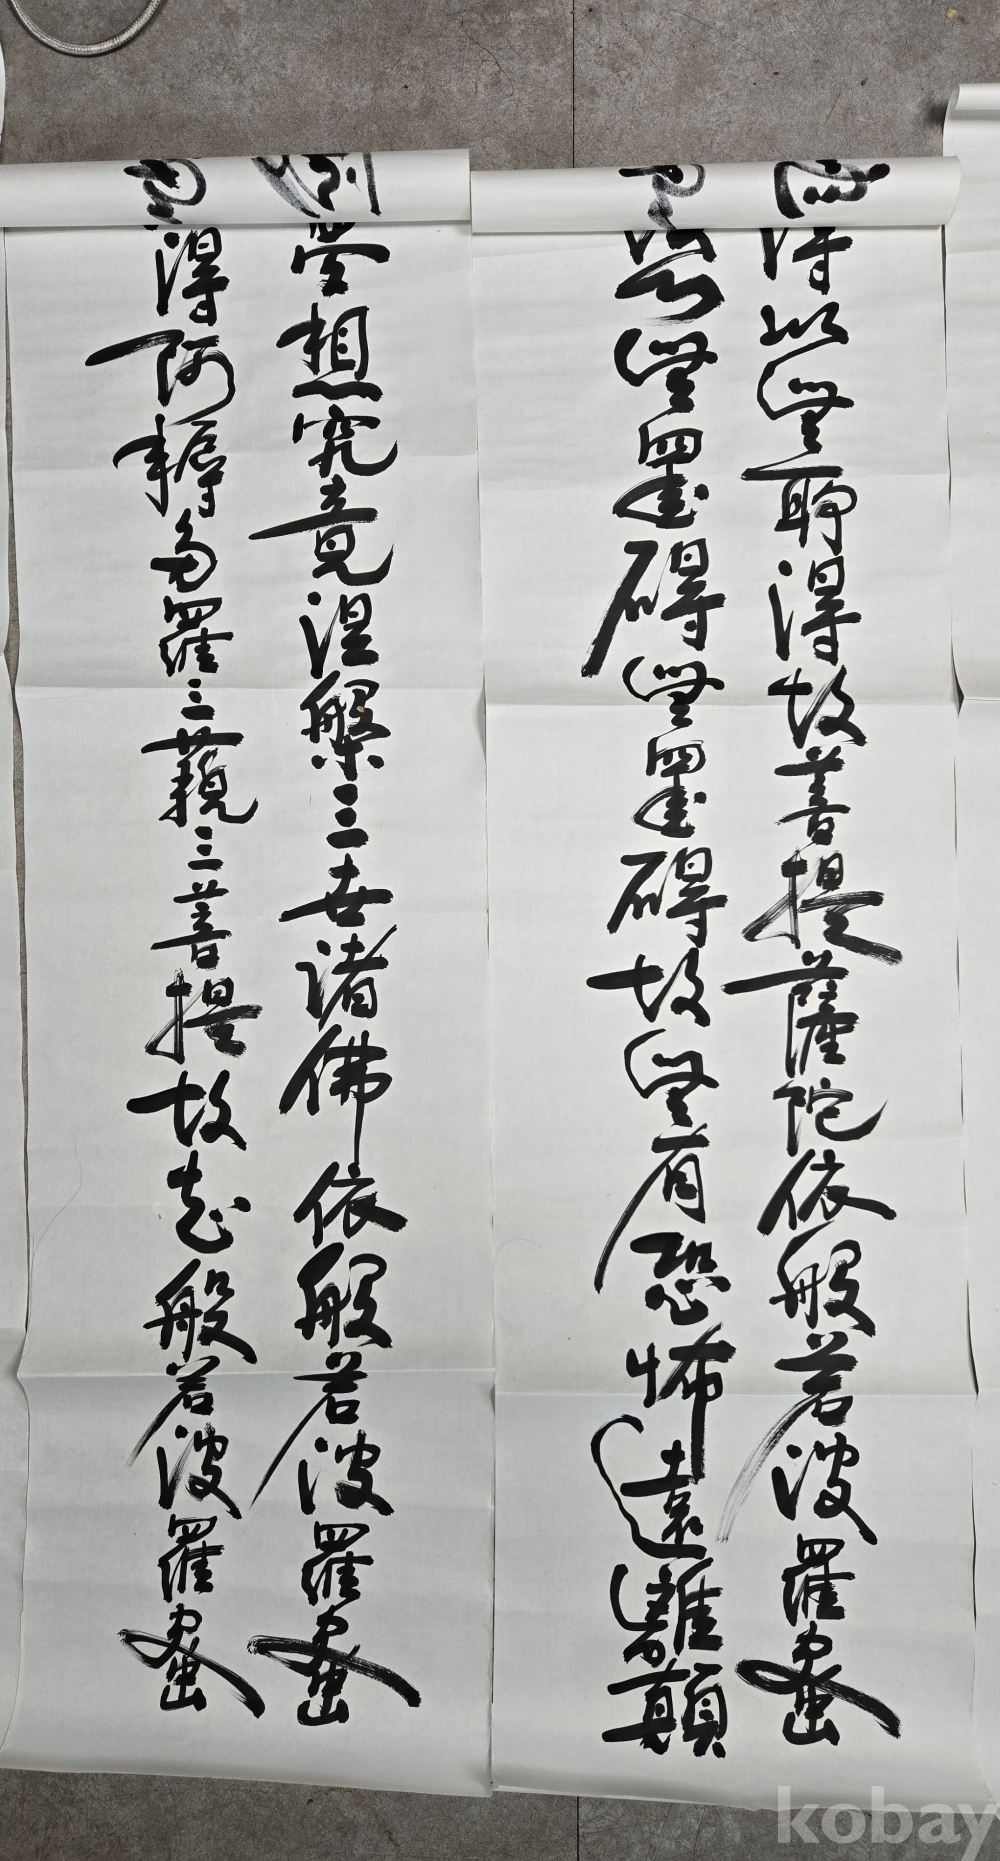 得以無所得故菩提薩陀依般若波羅蜜
心無罣碍無罣碍故無有恐怖遠離顛
夢想究竟涅槃三世諸佛依般若波羅蜜
得阿耨多羅三藐三菩提故知般若波羅蜜
kobay